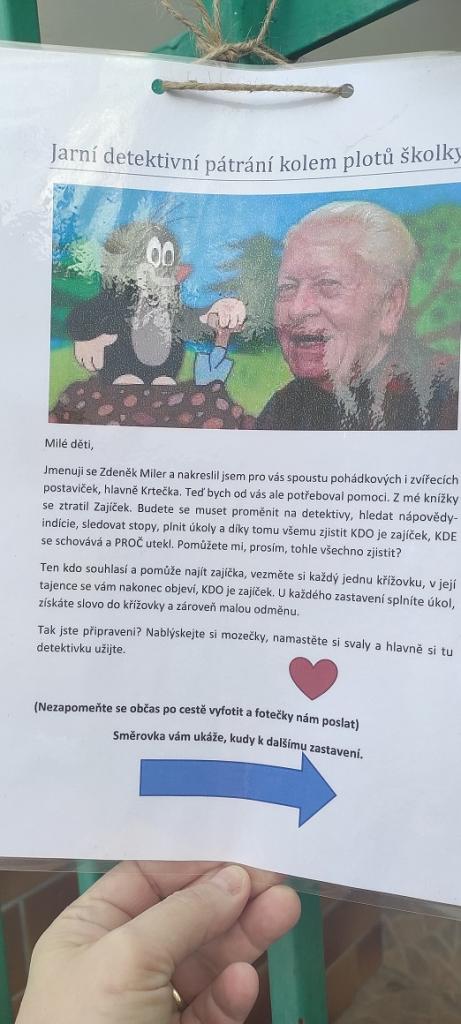 Jarní detektivní pátrání kolem plotů školky
Milé děti,
Jmenuji se Zdeněk Miler a nakreslil jsem pro vás spoustu pohádkových i zvířecích
postaviček, hlavně Krtečka. Teď bych od vás ale potřeboval pomoci. Z mé knížky
se ztratil Zajíček. Budete se muset proměnit na detektivy, hledat nápovědy-
indície, sledovat stopy, plnit úkoly a díky tomu všemu zjistit KDO je zajíček, KDE
se schovává a PROČ utekl. Pomůžete mi, prosím, tohle všechno zjistit?
Ten kdo souhlasí a pomůže najít zajíčka, vezměte si každý jednu křížovku, v její
tajence se vám nakonec objeví, KDO je zajíček. U každého zastavení splníte úkol,
získáte slovo do křížovky a zároveň malou odměnu.
Tak jste připraveni? Nablýskejte si mozečky, namastěte si svaly a hlavně si tu
detektivku užijte.
(Nezapomeňte se občas po cestě vyfotit a fotečky nám poslat)
Směrovka vám ukáže, kudy k dalšímu zastavení.